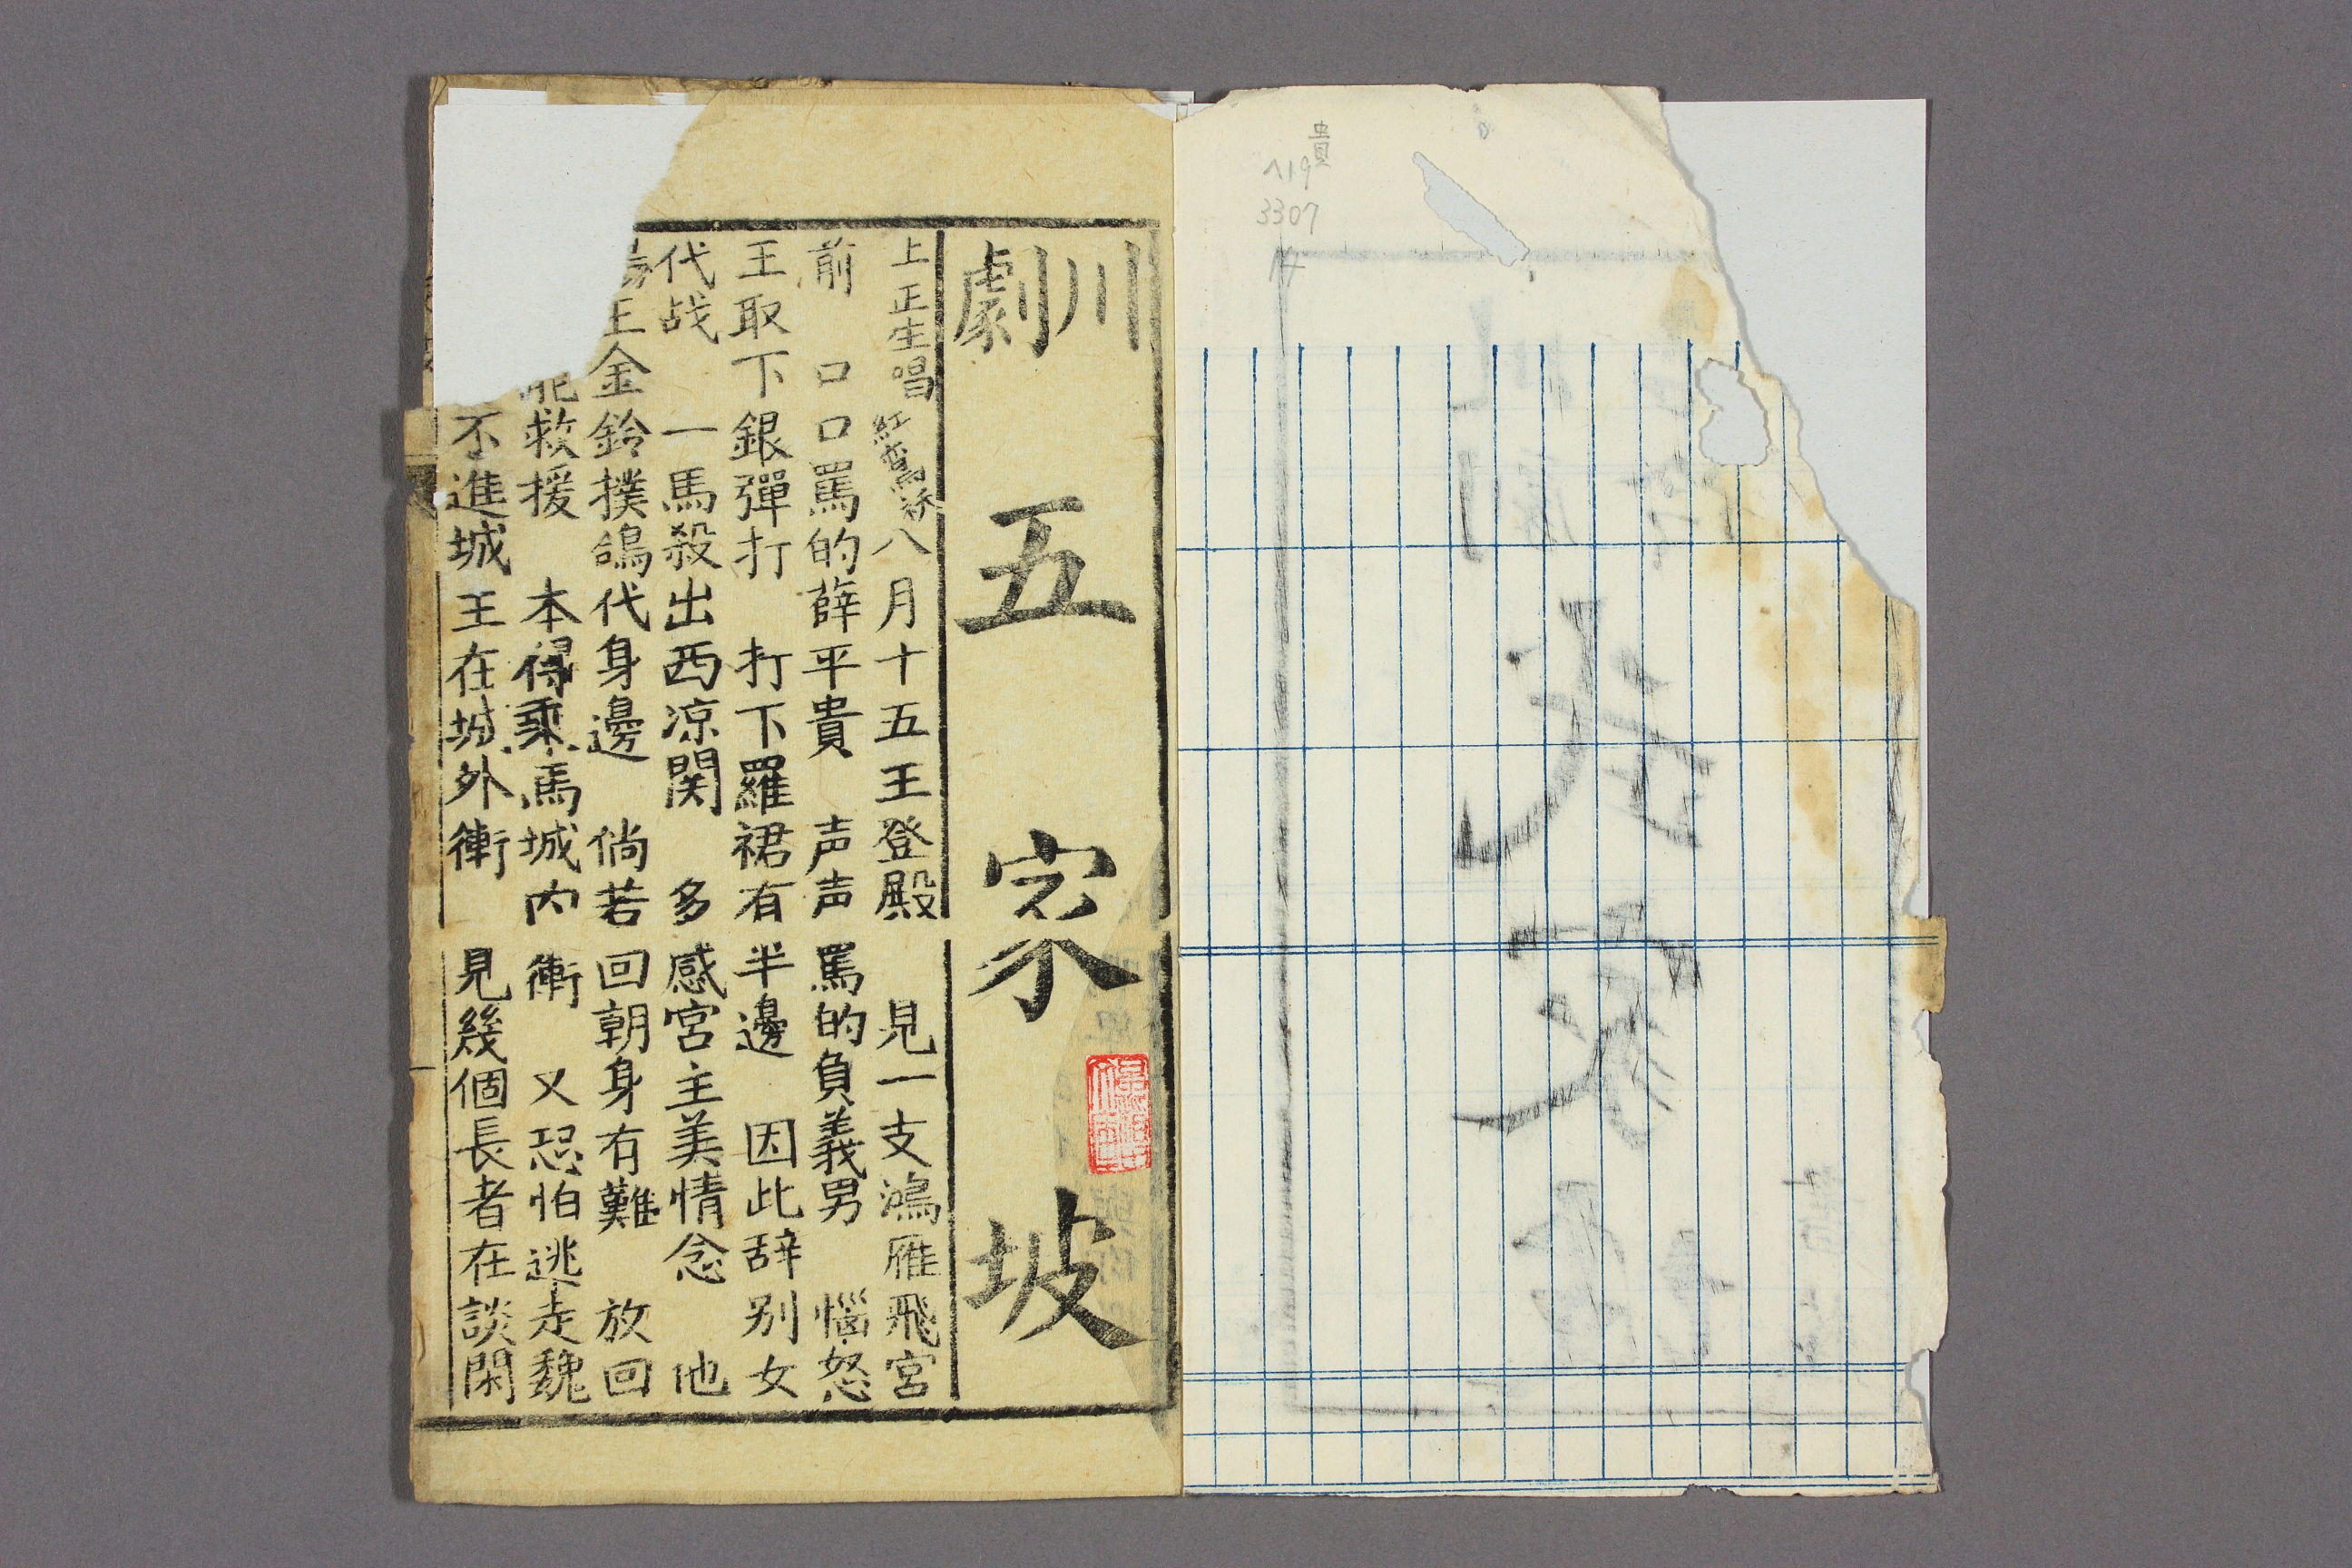 貴
ヘ19
3307
14
川劇
五家坡
上正生唱 紅鸾袄 八月十五王登殿 見一支鴻雁飛宮
前 口口罵的薛平貴 声声罵的負義男 惱怒
王取下銀彈打 打下羅裙有半邊 因此辞别女
代战 一馬殺出西凉関 多感宮主美情念 他
王金鈴撲鴿代身邊 倘若回朝身有難 放回
救援 本得乘馬城内衝 又恐怕逃走魏
不進城王在城外衝 見幾個長者在談閑